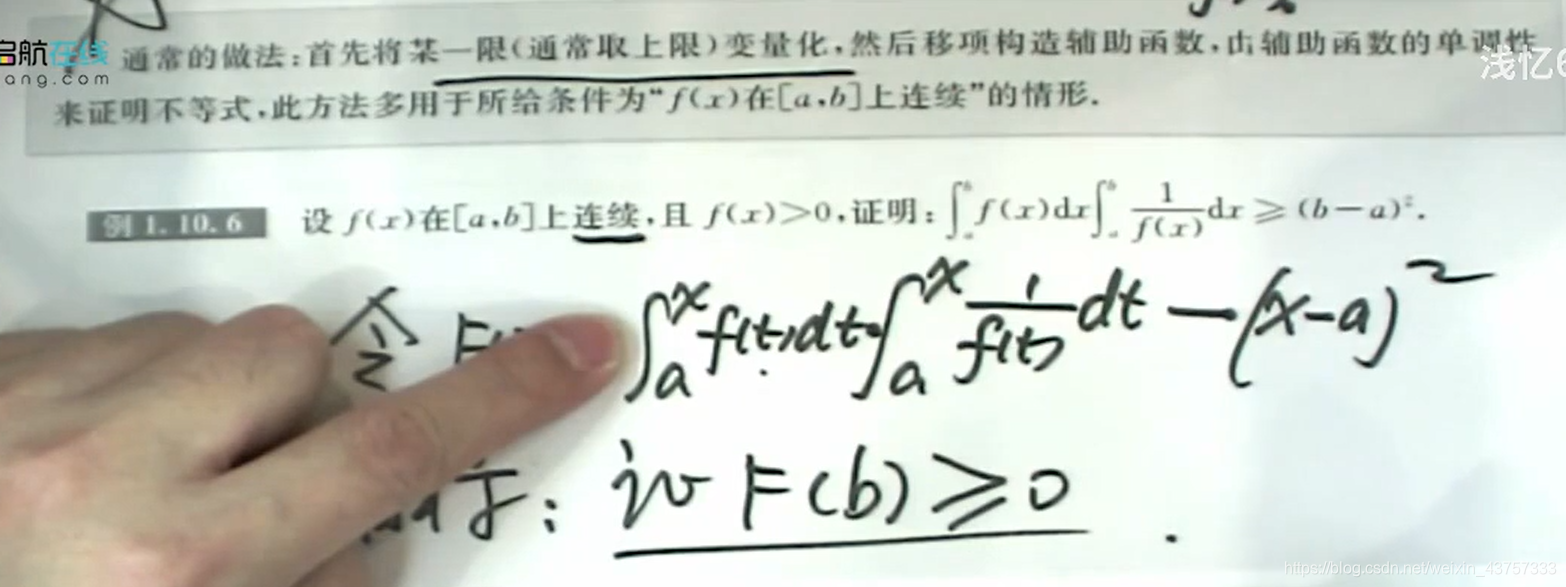 启航在线
ang.com
浅忆6
通常的做法:首先将某一限(通常取上限)变量化,然后移项构造辅助函数,由辅助函数的单调性
来证明不等式,此方法多用于所给条件为“f(x)在[a,b]上连续”的情形.
例 1.10.6 设 f(x)在[a,b]上连续,且 f(x)>0,证明:∫ₐᵇ f(x)dx∫ₐᵇ 1/f(x) dx ≥ (b-a)².
令 F ∫ₐˣ f(t)dt·∫ₐˣ 1/f(t) dt - (x-a)²
于: 证 F(b) ≥ 0
https://blog.csdn.net/weixin_43757333